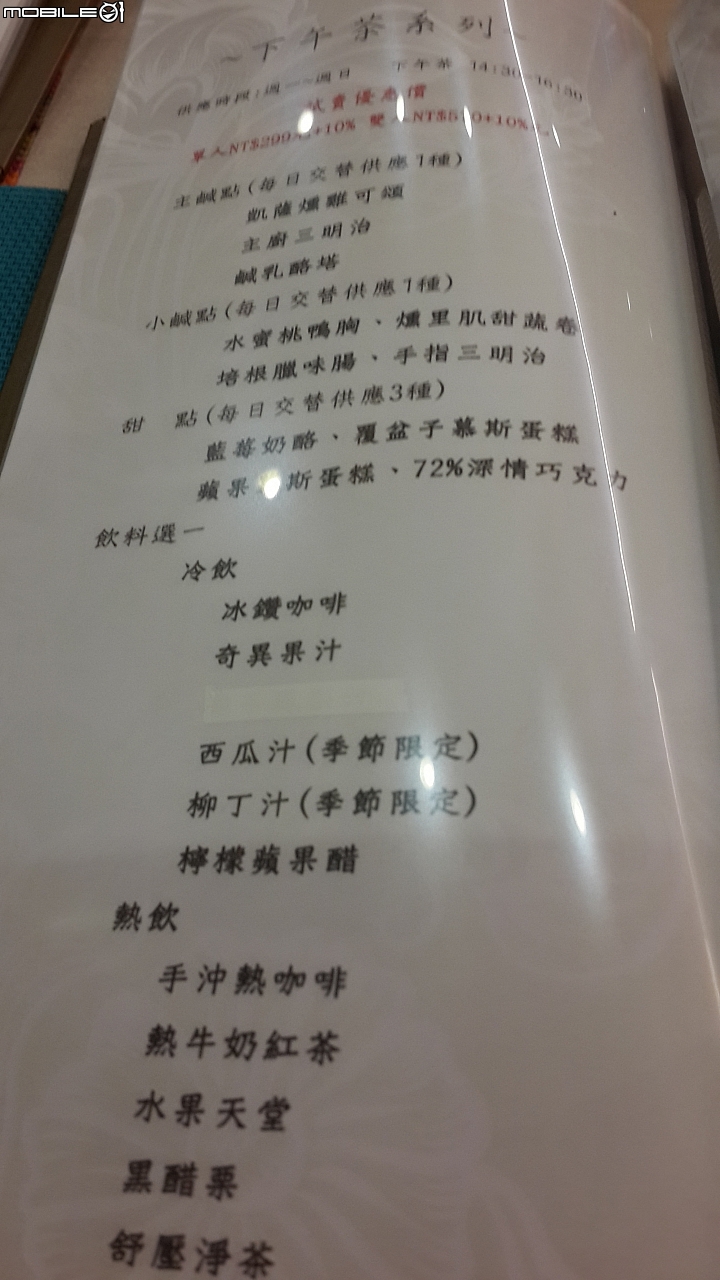 MOBILE01
~下午茶系列~
供應時段:週一~週日 下午茶 14:30~16:30
試賣優惠價
單人NT$299元+10% 雙人NT$5 0+10%
主鹹點(每日交替供應1種)
凱薩燻雞可頌
主廚三明治
鹹乳酪塔
小鹹點(每日交替供應1種)
水蜜桃鴨胸、燻里肌甜蔬卷
培根臘味腸、手指三明治
甜 點(每日交替供應3種)
藍莓奶酪、覆盆子慕斯蛋糕
蘋果 斯蛋糕、72%深情巧克力
飲料選一
冷飲
冰鑽咖啡
奇異果汁
西瓜汁(季節限定)
柳丁汁(季節限定)
檸檬蘋果醋
熱飲
手沖熱咖啡
熱牛奶紅茶
水果天堂
黑醋栗
舒壓淨茶